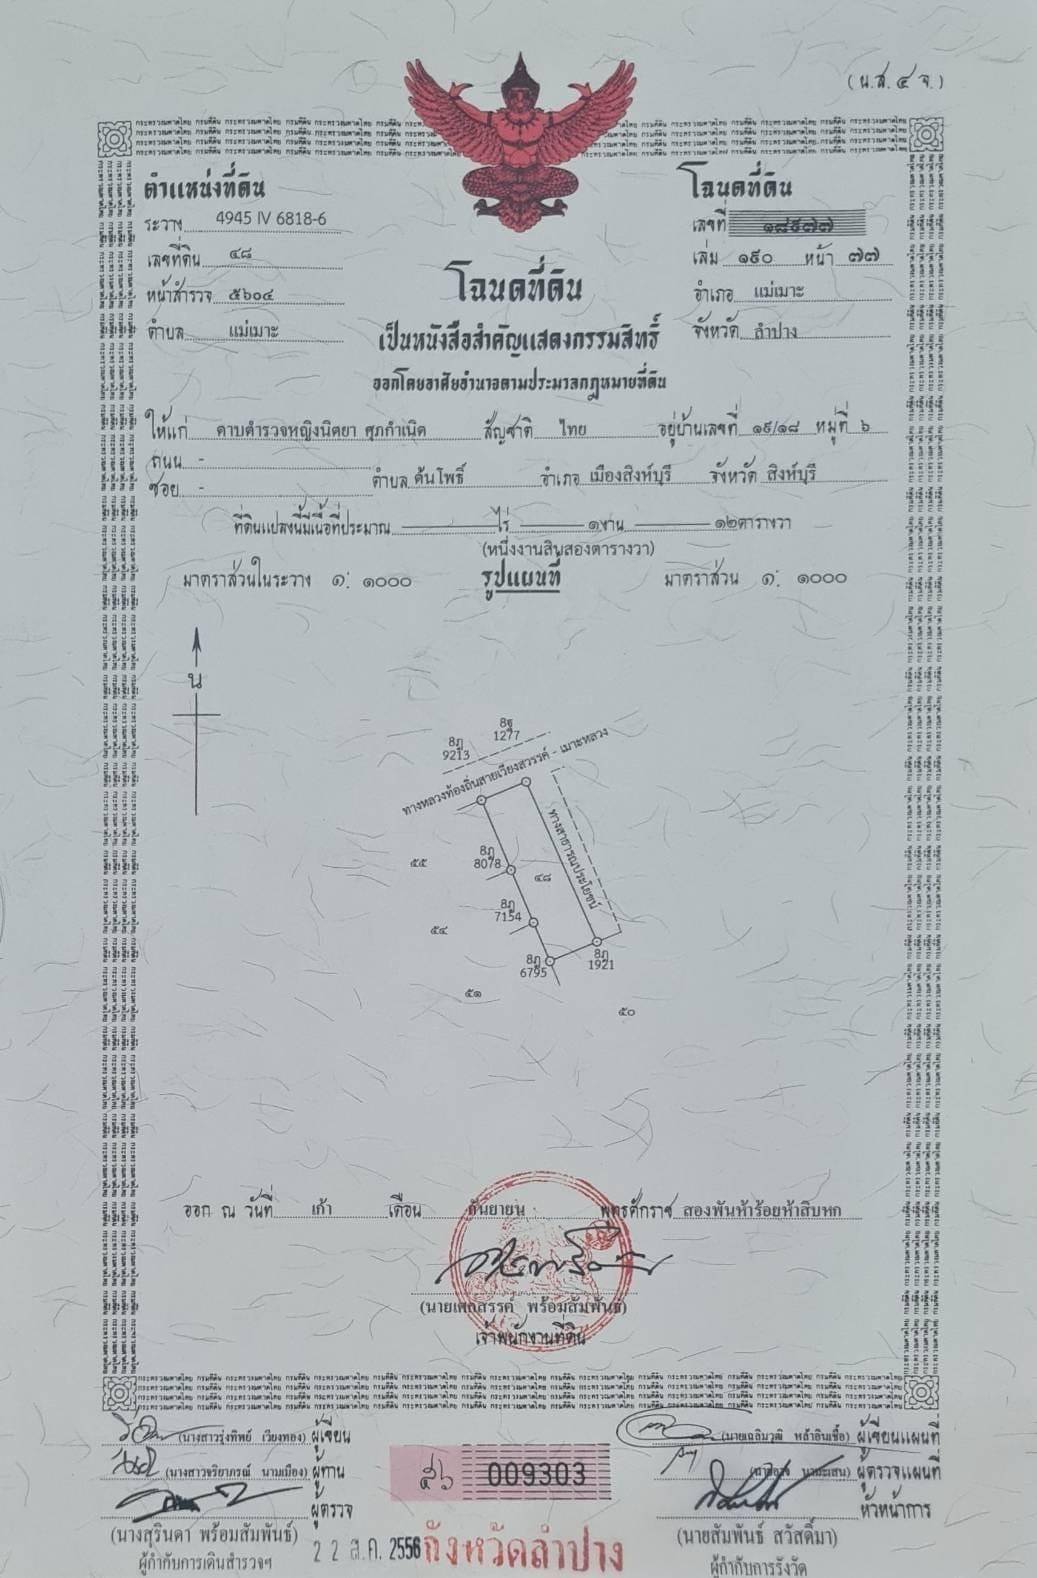 (น.ส. ๔ จ.)
ตำแหน่งที่ดิน
ระวาง 4945 IV 6818-6
เลขที่ดิน ๔๘
หน้าสำรวจ ๕๖๐๔
ตำบล แม่เมาะ
โฉนดที่ดิน
เลขที่ ๑๘๙๗๗
เล่ม ๑๙๐ หน้า ๗๗
อำเภอ แม่เมาะ
จังหวัด ลำปาง
โฉนดที่ดิน
เป็นหนังสือสำคัญแสดงกรรมสิทธิ์
ออกโดยอาศัยอำนาจตามประมวลกฎหมายที่ดิน
ให้แก่ ดาบตำรวจหญิงนิตยา ศุภกำเนิด สัญชาติ ไทย อยู่บ้านเลขที่ ๑๙/๑๘ หมู่ที่ ๖
ถนน -
ซอย - ตำบล ต้นโพธิ์ อำเภอ เมืองสิงห์บุรี จังหวัด สิงห์บุรี
ที่ดินแปลงนี้มีเนื้อที่ประมาณ ไร่ ๑ งาน ๑๒ ตารางวา
(หนึ่งงานสิบสองตารางวา)
มาตราส่วนในระวาง ๑: ๑๐๐๐ รูปแผนที่ มาตราส่วน ๑: ๑๐๐๐
น
8ฐ
1277
8ฎ
9213
ทางหลวงท้องถิ่นสายเวียงสวรรค์ - เมาะหลวง
ทางสาธารณประโยชน์
8ฎ
8078
๕๕
๔๘
8ฎ
7154
๕๔
8ฎ
6795
8ฎ
1921
๕๑
๕๐
ออก ณ วันที่ เก้า เดือน กันยายน พุทธศักราช สองพันห้าร้อยห้าสิบหก
(นายเพกสรรค์ พร้อมสัมพันธ์)
เจ้าพนักงานที่ดิน
(นางสาวรุ่งทิพย์ เวียงทอง) ผู้เขียน
(นางสาวจริยาภรณ์ นามเมือง) ผู้ทาน
ผู้ตรวจ
(นางสุรินดา พร้อมสัมพันธ์)
ผู้กำกับการเดินสำรวจฯ
๕๖ 009303
22 ส.ค. 2556 จังหวัดลำปาง
(นายเฉลิมวุฒิ หล้าอินเชื้อ) ผู้เขียนแผนที่
ผู้ตรวจแผนที่
หัวหน้าการ
(นายสัมพันธ์ สวัสดิ์มา)
ผู้กำกับการรังวัด